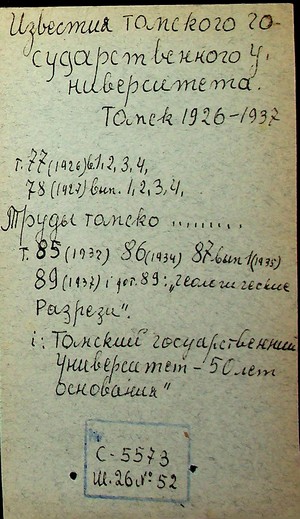 Известия томского го-
сударственного у-
ниверситета.
Томск 1926-1937
т. 77 (1926) в.1, 2, 3, 4,
78 (1927) вып. 1, 2, 3, 4,
Труды томско ........
т. 85 (1932) 86 (1934) 87 вып 1 (1935)
89 (1937) і дот. 89: „Геологические
Разрези".
і: Томский государственний
Университет - 50 лет
основания"
С-5573
Ш.26 № 52